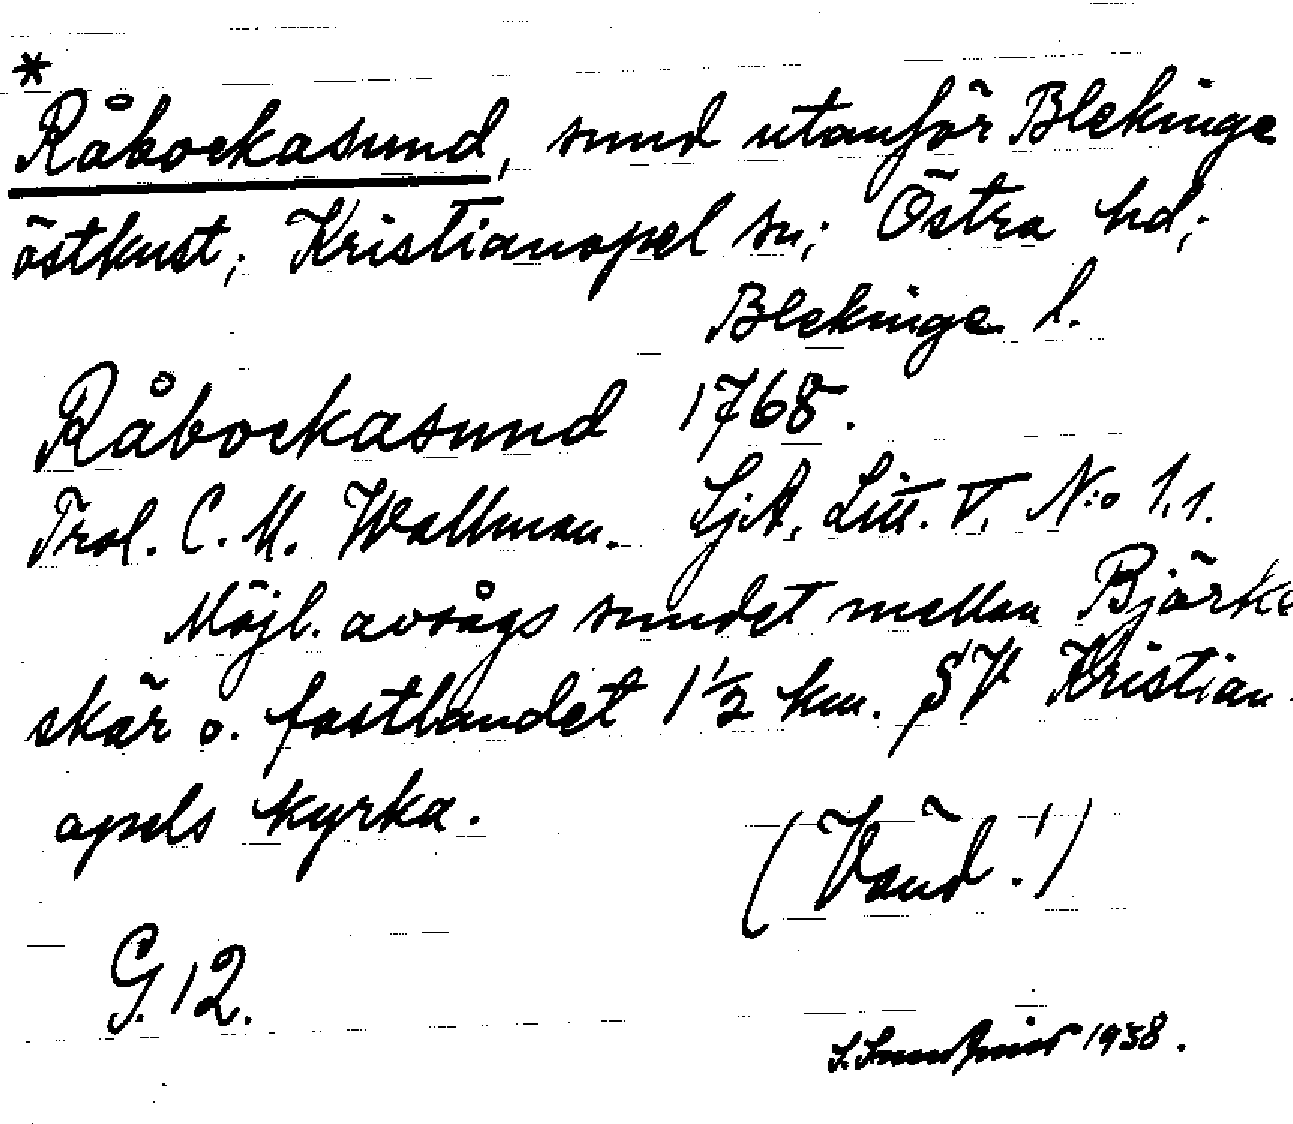 *
Råbockasund, sund utanför Blekinge
östkust; Kristianopel sn; Östra hd;
Blekinge l.
Råbockasund 1768.
Trol. C. M. Wallman. SjA, Litt. V. N:o 1.1.
Möjl. avsågs sundet mellan Björke
skär o. fastlandet 1 1/2 km. SV Kristian-
opels kyrka.
(Vänd!)
G. 12.
1938.